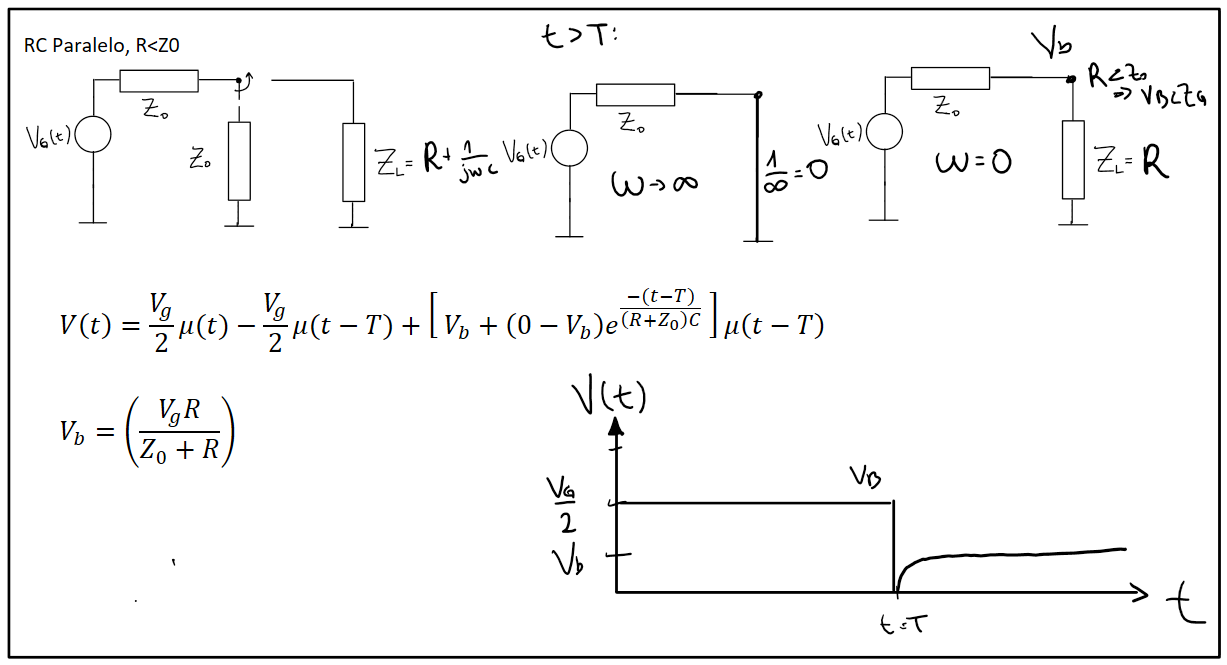 RC Paralelo, R<Z0
t>T:
V_b
Z_0
V_G(t)
Z_0
Z_L = R + 1/(jωC)
Z_0
V_G(t)
ω→∞
1/∞ = 0
Z_0
V_G(t)
ω=0
R<Z_0
⇒ V_B<Z_G
Z_L = R
V(t) = V_g/2 μ(t) − V_g/2 μ(t − T) + [V_b + (0 − V_b)e^(−(t−T)/((R+Z_0)C))] μ(t − T)
V_b = (V_g R/(Z_0 + R))
V(t)
V_B
V_G/2
V_b
t=T
t